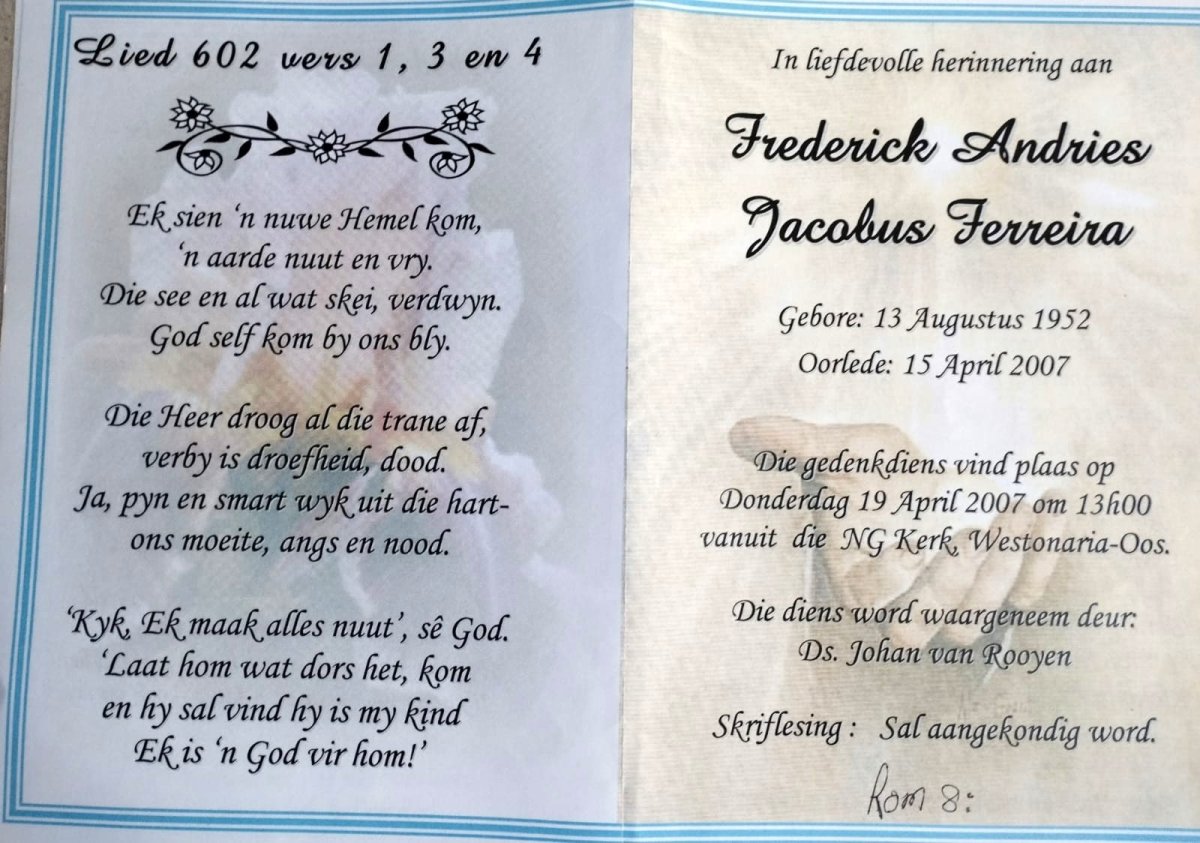 Lied 602 vers 1, 3 en 4
Ek sien ‘n nuwe Hemel kom,
‘n aarde nuut en vry.
Die see en al wat skei, verdwyn.
God self kom by ons bly.
Die Heer droog al die trane af,
verby is droefheid, dood.
Ja, pyn en smart wyk uit die hart-
ons moeite, angs en nood.
‘Kyk, Ek maak alles nuut’, sê God.
‘Laat hom wat dors het, kom
en hy sal vind hy is my kind
Ek is ‘n God vir hom!’
In liefdevolle herinnering aan
Frederick Andries
Jacobus Ferreira
Gebore: 13 Augustus 1952
Oorlede: 15 April 2007
Die gedenkdiens vind plaas op
Donderdag 19 April 2007 om 13h00
vanuit die NG Kerk, Westonaria-Oos.
Die diens word waargeneem deur:
Ds. Johan van Rooyen
Skriflesing : Sal aangekondig word.
Rom 8: